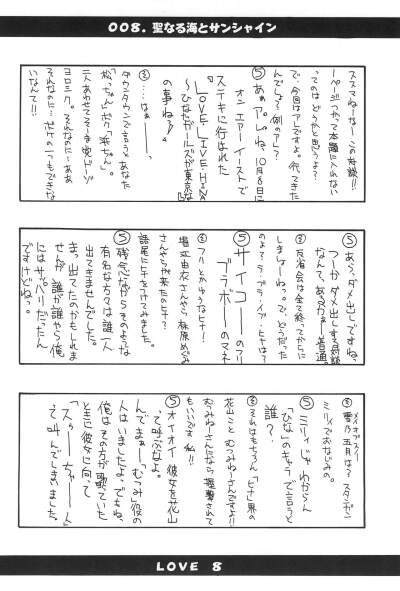 008. 聖なる海とサンシャイン
ススマねーなーこの対談!!
一ページつかって本題に入れない
ってのはどうかと思うよ?
で、今回はアレですよ。代てきた
んでしょ?例のアレ?
⑤あぁ。アレね、10月8日に
オン エアー イーストで
ステキに行なわれた
『LOVE LIVE HINA
～ひなたガールズが東京な』
の事ね♪
②…はぁーー、
ダウンタウンで言うとあなた
松ちゃん ボク「浜ちゃん」。
二人あわせてそーま竜ドーゾ
ヨロシク。それなのに…ああ
それなのに…ボケの一つもできな
いなんて!!
⑤あら、ダメ出しですね。
つーかダメ出しする対談
なんて、あるかぁー普通。
②反省会は全て終ってからに
しましょーねっ。で、どうだった
のよ?ラ・ブライブ・ヒナは?
⑤サイコーのフリ
ブラボーのマネ
②フリとかゆうなヒナ!
堀江由衣さんやら林原めぐみ
さんやらが来たのヒナ?
語尾にヒナをつけてみました。
⑤残念ながらそのような
有名な方々は誰一人
出てきませんでした。
まっ、出てたのかもしれま
せんが、誰が誰やら俺
にはサッパリだったん
ですけどね。
②雪乃五月は?スタンガン
ミリィでおなじみの。
⑤ミリィじゃわからん
「ひな」のキャラで言うと
誰?
②それはもちろん「ヒナ」界の
花山ことむつみねーさんですよ!!
むつみねーさんになら握撃されて
もいいです 私!!
⑤オイオイ 彼女を花山
って呼ぶなよ。
んでまぁー「むつみ」役の
人はいましたよ。でもね、
俺はその方が歌っていた
と志彼女に向って
「スぅーちゃーん」
って叫んでしまいました。
LOVE 8